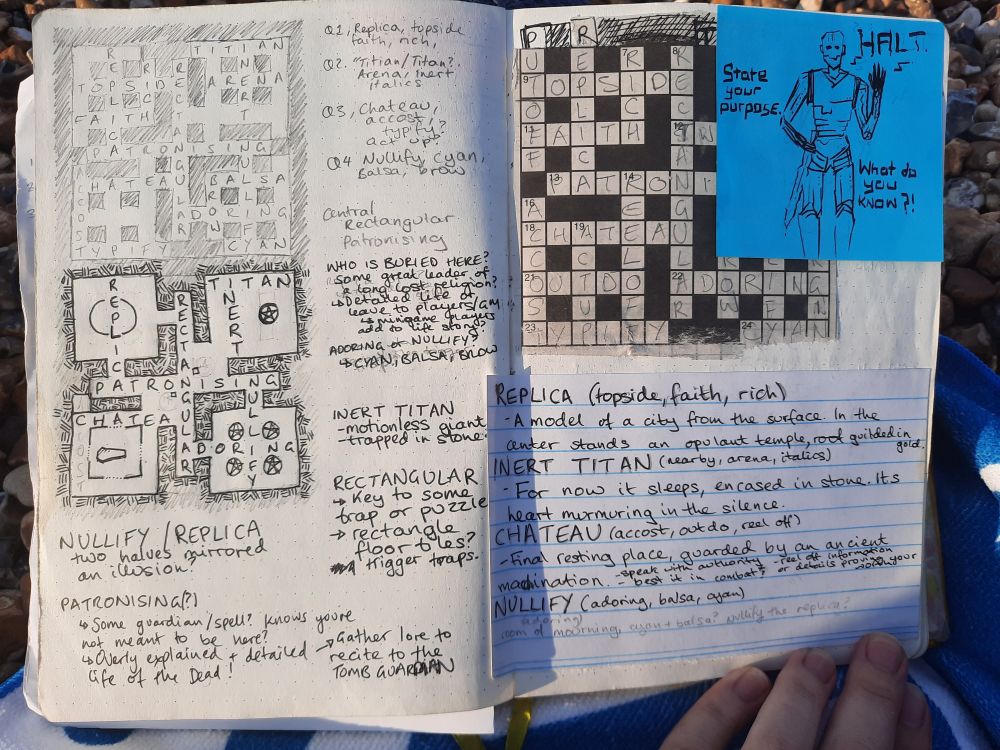 Q1, Replica, topside
faith, rich,
Q2. "Titian/Titan?.
Arena, inert
italics
Q3, Chateau,
accost,
typify?
act up?
Q4 Nullify, cyan,
Balsa, brow
Central
Rectangular
Patronising
WHO IS BURIED HERE?
Some great leader of
a long lost religion?
↳ Detailed life of
leave to players/GM
↳ minigame players
add to life story?
ADORING or NULLIFY?
↳ CYAN, BALSA, BROW
INERT TITAN
- motionless giant
- trapped in stone.
RECTANGULAR
→ Key to some
trap or puzzle
→ rectangle
floor tiles?
trigger traps.
→ Gather lore to
recite to the
TOMB GUARDIAN
TITIAN
TOPSIDE ARENA
FAITH
PATRONISING
CHATEAU BALSA
ADORING
TYPIFY CYAN
REPLICA
TITAN
INERT
RECTANGULAR
PATRONISING
CHATEA
NULLIFY
ADORING
NULLIFY/REPLICA
two halves mirrored
an illusion?
PATRONISING(?)
↳ Some guardian/spell? knows youre
not meant to be here?
↳ Overly explained + detailed
life of the Dead!
P R
7 8
9 TOPSIDE
11 FAITH 12
13 PATRONI
14
16
18 CHATEAU
19
21 OUTDO 22 ADORING
23 TYPIFY 24 CYAN
HALT.
State
your
purpose.
What do
you
know?!
REPLICA (topside, faith, rich)
- A model of a city from the surface. In the
center stands an opulant temple, roof guilded in
gold.
INERT TITAN (nearby, arena, italics)
- For now it sleeps, encased in stone. Its
heart murmuring in the silence.
CHATEAU (accost, outdo, reel off)
- Final resting place, guarded by an ancient
machination. - speak with authority - reel off information
- best it in combat? or details proving your
NULLIFY (adoring, balsa, cyan)
adoring
room of mourning, cyan + balsa? Nullify the replica?